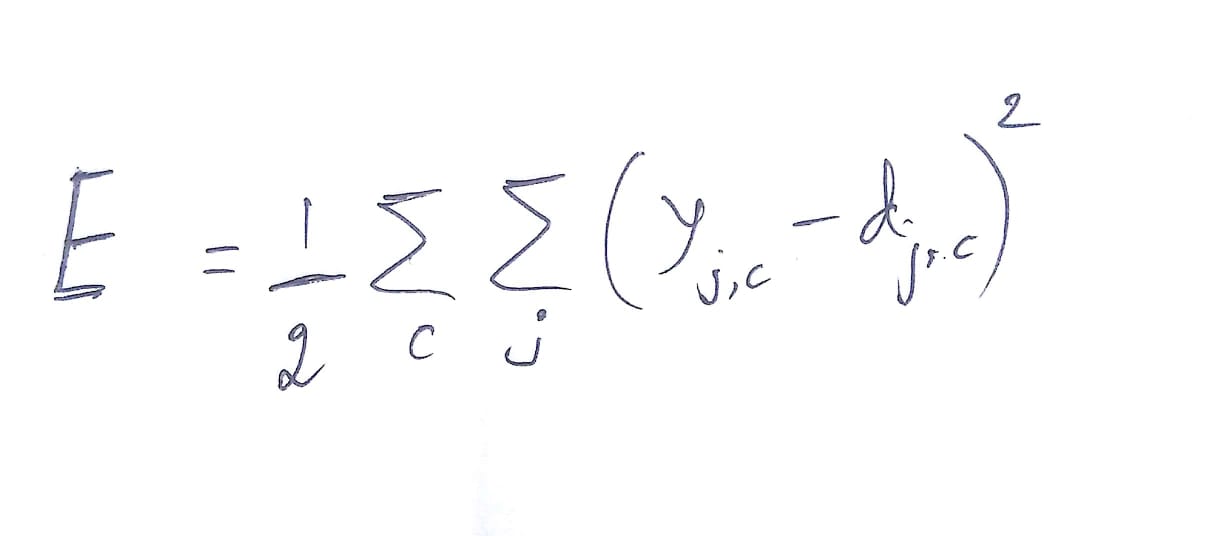 E = \frac{1}{2} \sum_{c} \sum_{j} (y_{j,c} - d_{j,c})^2